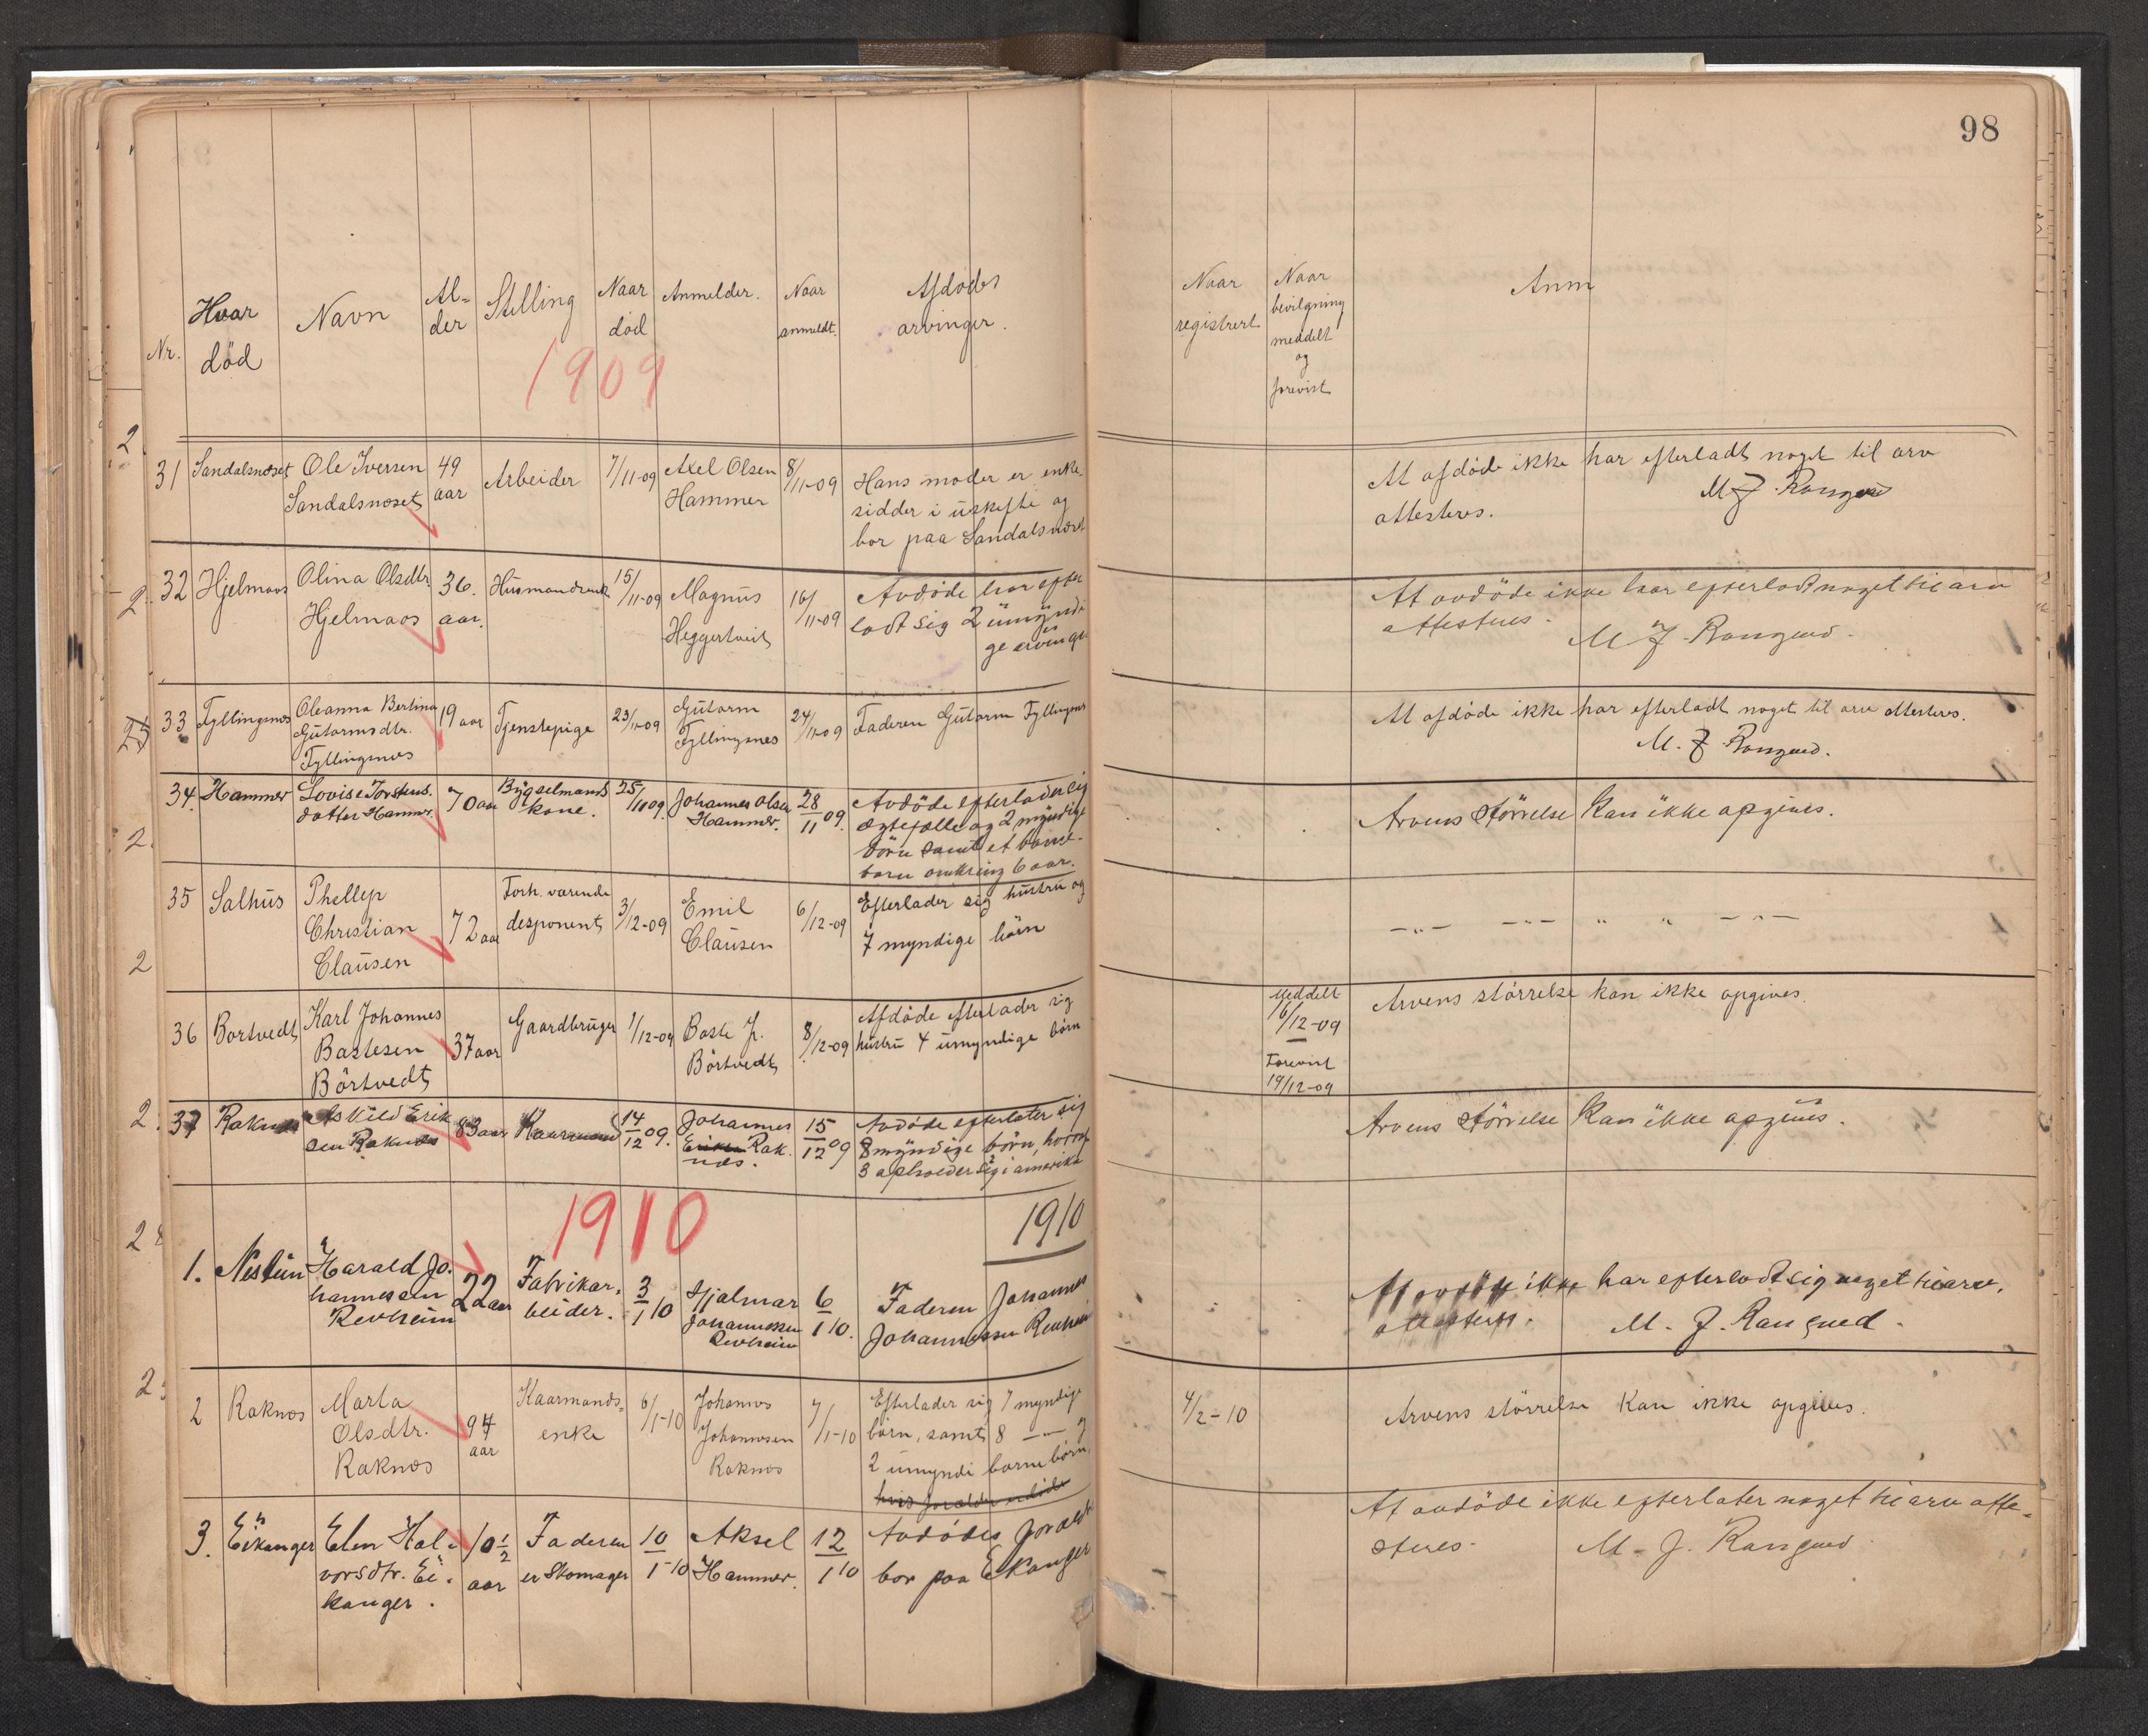 98
Nr.
Hvor død
Navn
Al-
der
Stilling
Naar død
Anmelder.
Naar anmeldt.
Afdødes arvinger.
Naar registrert
Naar
bevilgning
meddelt
og
forevist
Anm
1909
31 Sandalsnæset Ole Iversen 49 Arbeider 7/11-09 Axel Olsen 8/11-09 Hans moder er enke
Sandalsnæset aar Hammer sidder i uskifte og
bor paa Sandalsnæset
At afdøde ikke har efterladt noget til arv
attesteres.
32 Hjelmaas Olina Olsdtr. 36. 15/11-09 Magnus 16/11-09 Avdøde har efter
Hjelmaas aar. Heggertveit ladt sig 2 umyndi
ge arvinger
At avdøde ikke har efterladt noget til arv
attesteres.
33 Fyllingsnes Oleanna Bertina 19 aar Tjenstepige 23/11-09 Gutorm 24/11-09 Faderen Gutorm Fyllingsnes
Gutormsdtr. Fyllingsnes
Fyllingsnes
At afdøde ikke har efterladt noget til arv attesteres.
34. Hammer Lovise Torstens. 70 aar Bygselmands 25/11 09. Johannes Olsen 28/11 09. Avdøde efterlader sig
datter Hammer. kone. Hammer. ægtefælle og 2 myndige
børn samt et barne-
barn omkring 6 aar.
Arvens störrelse kan ikke opgives.
35 Salhus Phellep 72 aar Forh. værende 3/12-09 Emil 6/12-09 Efterlader sig hustru og
Christian desponent Clausen 7 myndige börn
Clausen
—"— —"— " " —"—
36 Bortvedt Karl Johannes 37 aar Gaardbruger 1/12-09 Baste J. 8/12-09 Afdøde efterlader sig
Bastesen Börtvedt hustru 4 umyndige börn
Börtvedt
Meddelt
16/12-09
Forevist
19/12-09
Arvens störrelse kan ikke opgives.
37 Raknes Askild Erik 83 aar Kaarmand 14/12 09. Johannes 15/12 09 Avdøde efterlater sig
sen Raknes Eriksen Rak. 8 myndige börn, hvoraf
nes. 3 opholder sig i amerika
Arvens störrelse kan ikke opgives.
1910
1910
1. Harald Jo. 22 aar Fabrikar. 3/1 10 Hjalmar 6/1 10. Faderen Johannes
hannesen beider. Johannessen Johannessen Revheim
Revheim Revheim
At avdøde ikke har efterladt sig noget til arv.
attesteres.
2 Raknes Marta 94 Kaarmands= 6/1-10 Johannes 7/1-10 Efterlader sig 7 myndige
Olsdtr. aar enke Johannesen börn, samt 8 —"— og
Raknes Raknes 2 umyndi barnebörn,
4/2-10
Arvens störrelse kan ikke opgives.
3. Eikanger Elen Hal- 10 1/2 Faderen 10/1-10 Aksel 12/1 10 Avdødes foreldre
vorsdtr. Ei. aar er Skomager Hammer. bor paa Ekanger
kanger.
At avdøde ikke efterlater noget til arv atte-
steres.